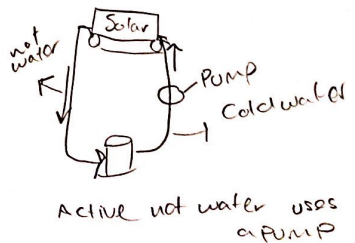 Solar
hot
water
Pump
Cold water
Active hot water uses
a Pump